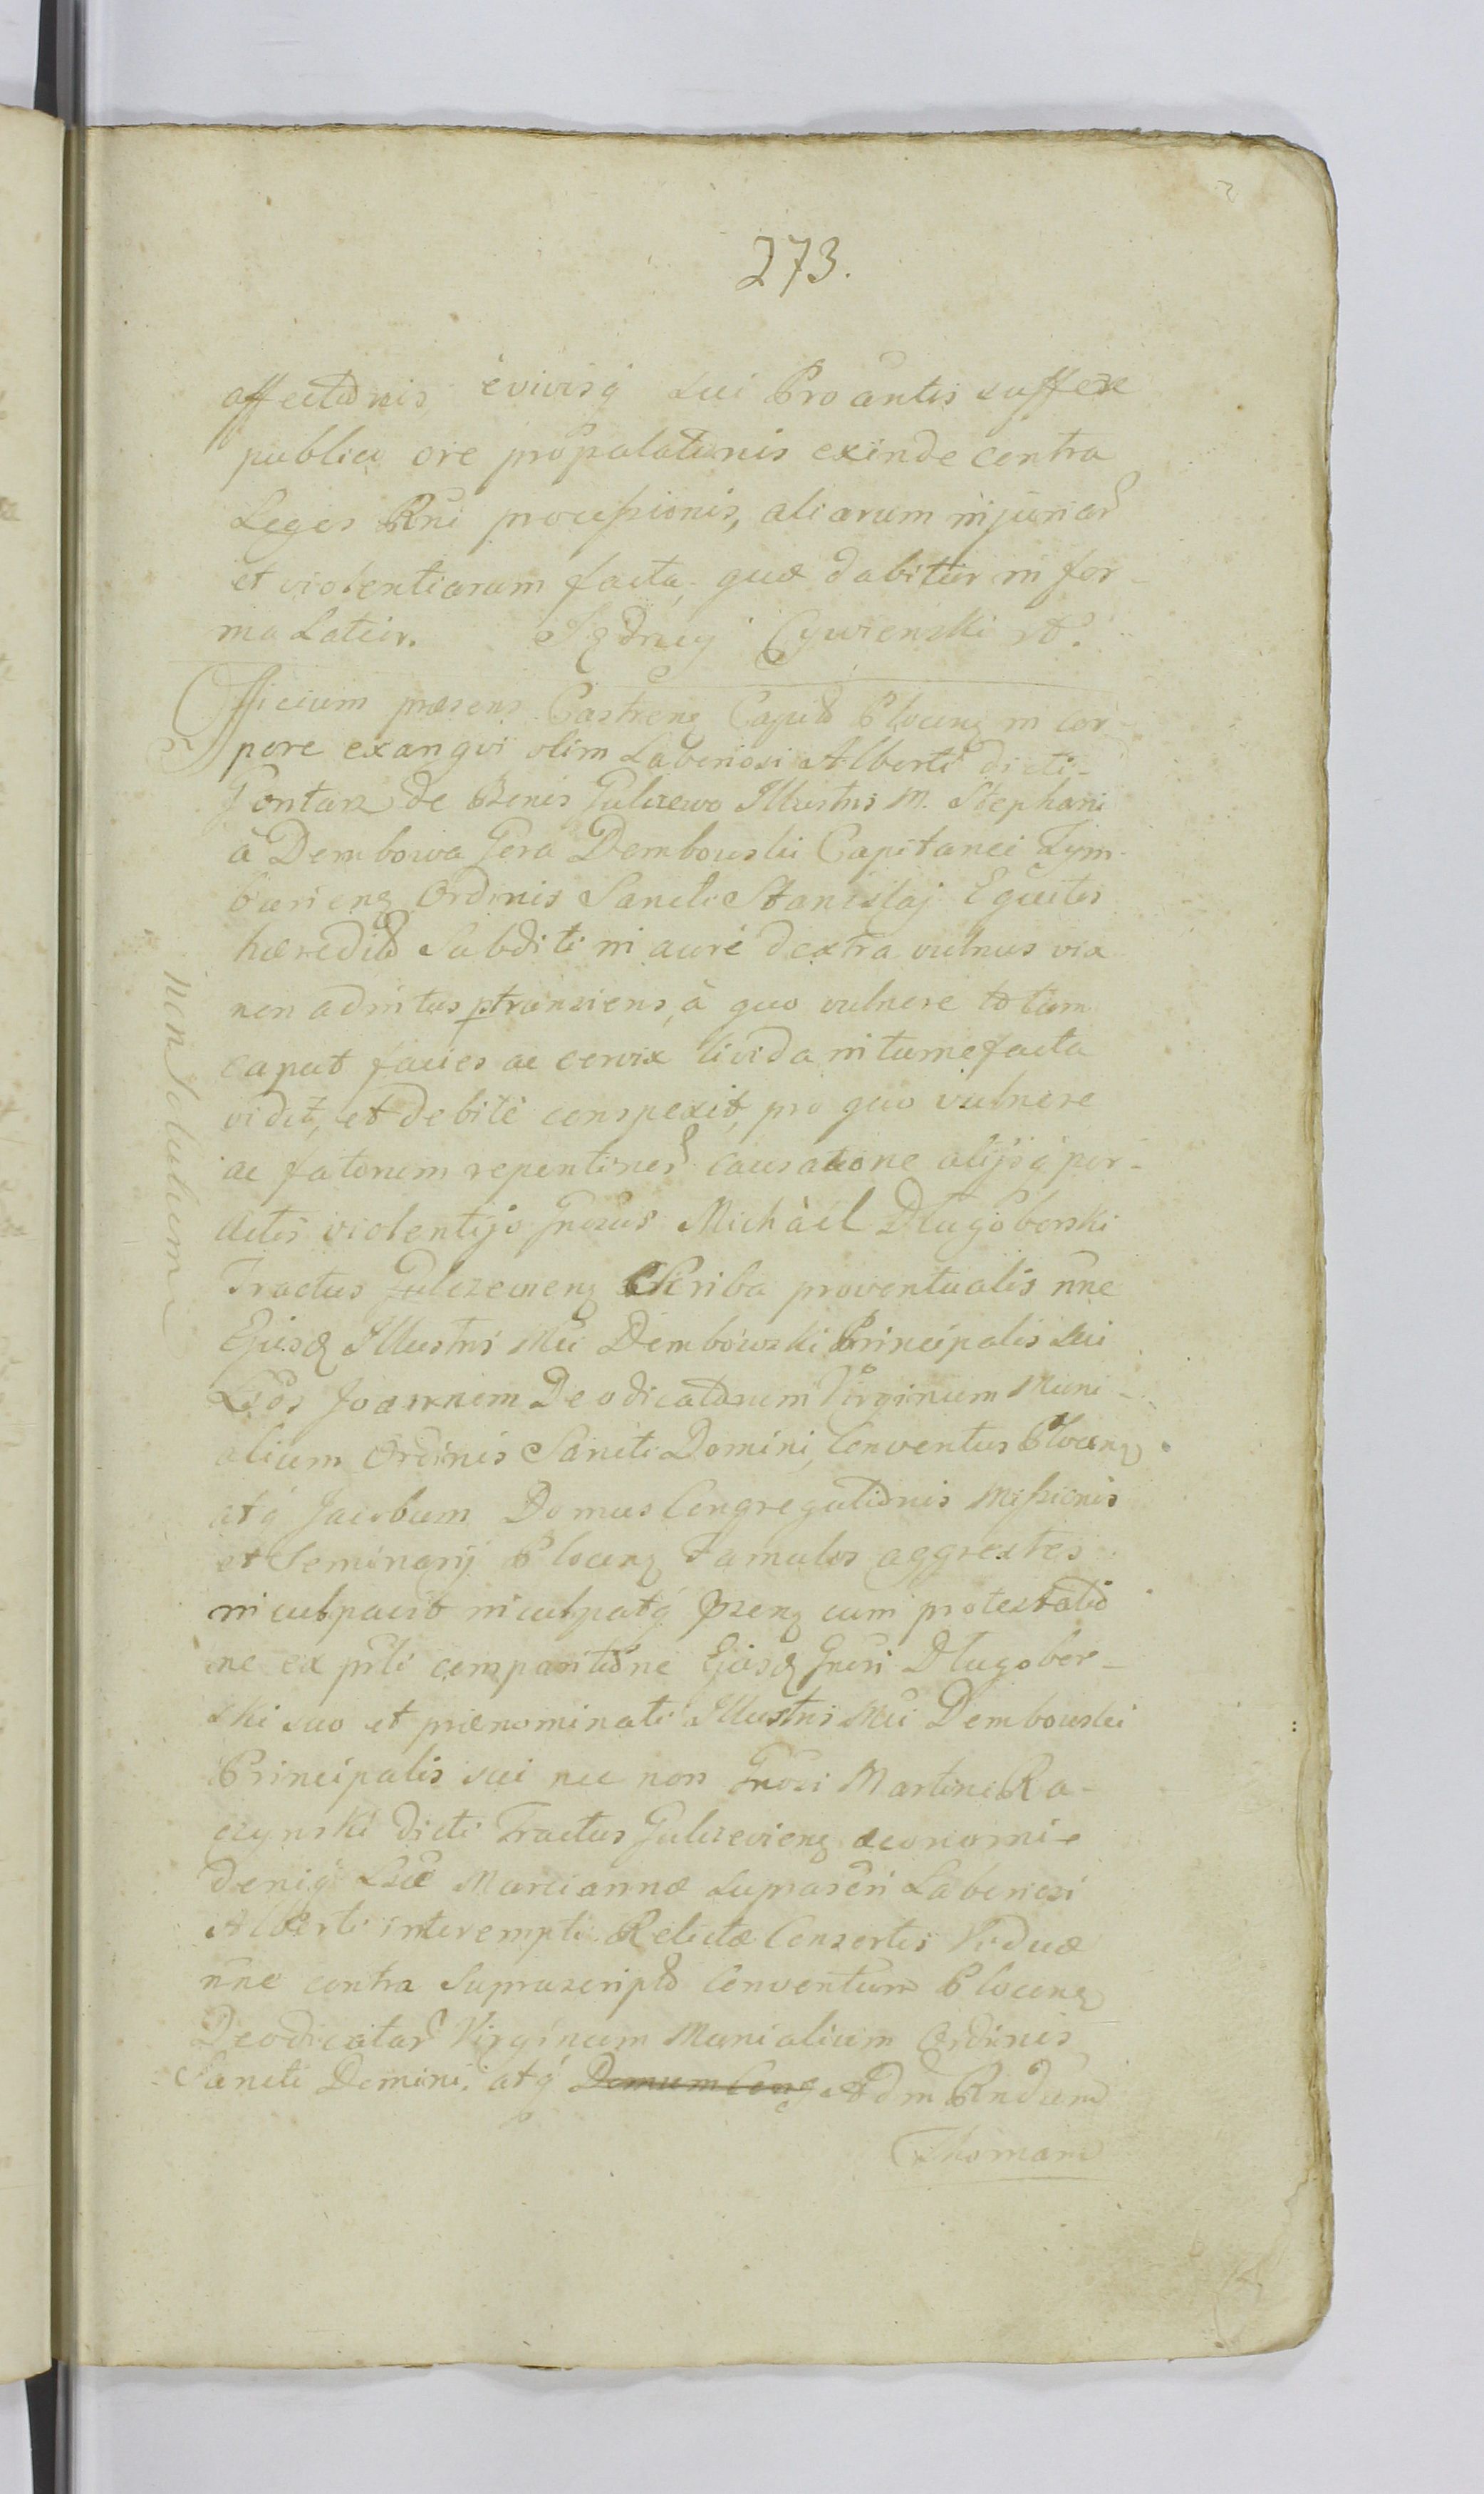 273.
affectionis, èvivisq́ sui Proantis suffere
publico ore propalationis exinde contra
Leges Rñi processionis, aliarum injuriar
et violentiarum facta, quæ dabitur in for-
ma Latior. Cywienski
Officium præsens Castrenꝫ Capitł Plocenꝫ in cor-
pore exangvi olim Laboriosi Alberti dicti-
Gontarz de Bonis Gulczewo Illustris M. Stephani
à Dembowa Gora Dembowski Capitanei Tym-
barienꝫ Ordinis Sancti Stanislaj Equitis
hæredit Subditi in aure dextra vulnus via
non adintus ptransiens, à quo vulnere totum
caput facies ac cervix livida intumefacta
vidit, et debitè conspexit, pro quo vulnere
ac fatorum repentinor causatione alijsq́ per-
actis violentijs Gnosus Michàèl Długoborski
Tractus Gulczewienꝫ Scriba proventualis ñnc
Ejusd Illustris Mći Dembowski Principalis sui
Lsos Joannem Deodicatarum Virginum Moni-
alium Ordinis Sancti Domini, Conventus Plocenꝫ
atq́ Jacobum Domus Congregationis Missionis
et Seminarij Plocenꝫ Famulos aggrestes
inculpavit inculpatq́ præsenꝫ cum protestatio
ne ex psñti comparitione Ejusd Gnosi Długobor-
ski suo et prænominati Illustris Mći Dembowski
Principalis sui nec non Gnosi Martini Ra-
czynski dicti Tractus Gulczevienꝫ œconomi-
deniq́ Lsæ Mariannæ suprascri Laboriosi
Alberti interempti Relictæ Consortis Viduæ
ñnc contra Suprascript Conventum Plocenꝫ
Deodicatar Virginum Monialium Ordinis
Sancti Domini, atq́ Domum Cong Adm Rndum
Thomam
non solutum